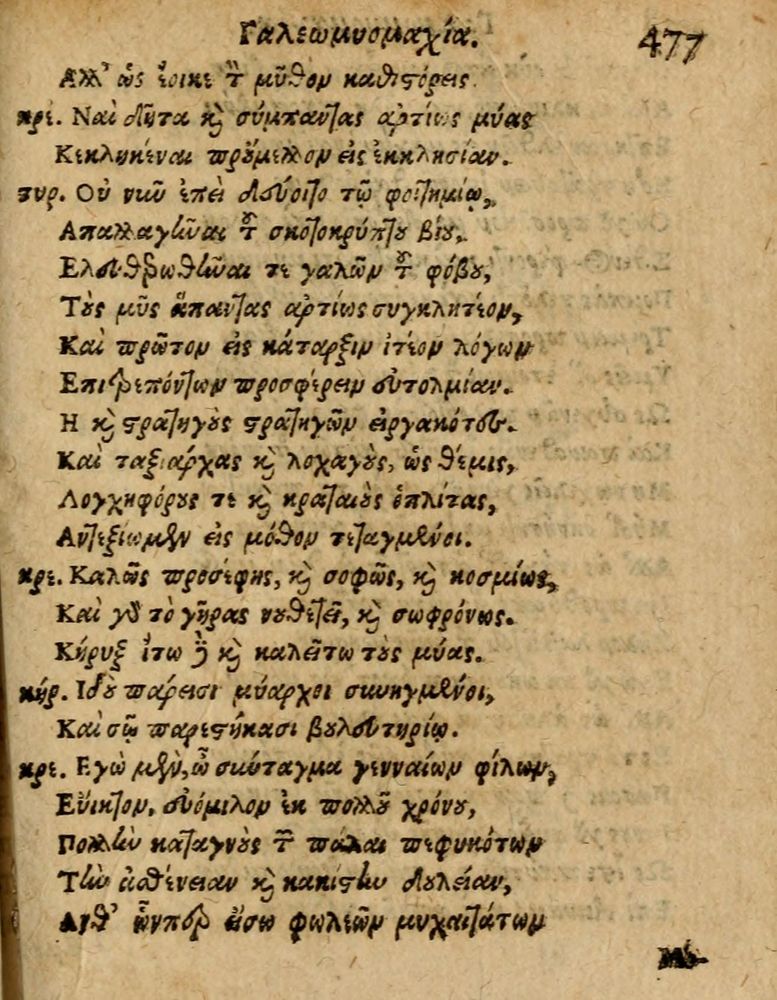 Γαλεωμυομαχία. 477
Αλλ' ὡς ἔοικε τὸν μῦθον καθιστόρεις.
κρε. Ναὶ δῆτα καὶ σύμπαντας ἀρτίως μύας
Κεκληκέναι πρόυμελλον εἰς ἐκκλησίαν.
τυρ. Οὐ νιῦ ἐπεὶ δεύροιτο τῷ φοιτημίῳ,
Απαλλαγῆναι τοῦ σκοτοκρύπτου βίου,
Ελευθερωθῆναι τε γαλῶν τοῦ φόβου,
Τοὺς μῦς ἅπαντας ἀρτίως συγκλητέον,
Καὶ πρῶτον εἰς κάταρξιν ἰτέον λόγων
Επιτρεπόντων προσφέρειν εὐτολμίαν.
Η καὶ στρατηγοὺς στρατηγῶν εἰργακότες.
Καὶ ταξιάρχας καὶ λοχαγοὺς, ὡς θέμις,
Λογχηφόρους τε καὶ κραταιοὺς ὁπλίτας,
Αντεξίωμεν εἰς μόθον τεταγμένοι.
κρε. Καλῶς προσέφης, καὶ σοφῶς, καὶ κοσμίως,
Καὶ γὰρ τὸ γῆρας νουθετεῖ, καὶ σωφρόνως.
Κήρυξ ἴτω καὶ καλείτω τοὺς μύας.
κήρ. Ιδοὺ πάρεισι μύαρχοι συνηγμένοι,
Καὶ σῷ παρεστήκασι βουλευτηρίῳ.
κρε. Εγὼ μὲν, ὦ σύνταγμα γενναίων φίλων,
Εὔικτον, εὐόμιλον ἐκ πολλοῦ χρόνου,
Πολλὴν καταγνοὺς τῶν πάλαι πεφυκότων
Τὴν ἀσθένειαν καὶ κακίστην δουλείαν,
Ανθ' ὧνπερ ἔσω φωλεῶν μυχαιτάτων